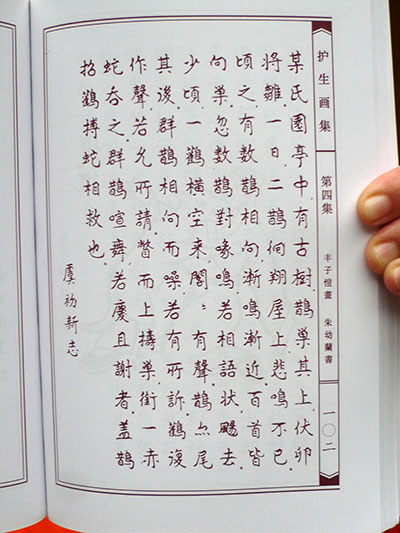 护生画集
第四集
丰子愷畫 朱幼蘭書
一〇二
某氏園亭中有古樹鵲巢其上伏卵
將雛一日二鵲徊翔屋上悲鳴不已
頃之有數鵲相向漸鳴漸近百首皆
向巢忽數鵲對喙鳴若相語狀颺去
少頃一鸛橫空來閣〻有聲鵲亦尾
其後群鵲相向而噪若有所訴鸛復
作聲若允所請瞥而上擣巢銜一赤
蛇吞之群鵲喧舞若慶且謝者蓋鵲
招鸛搏蛇相救也
虞初新志